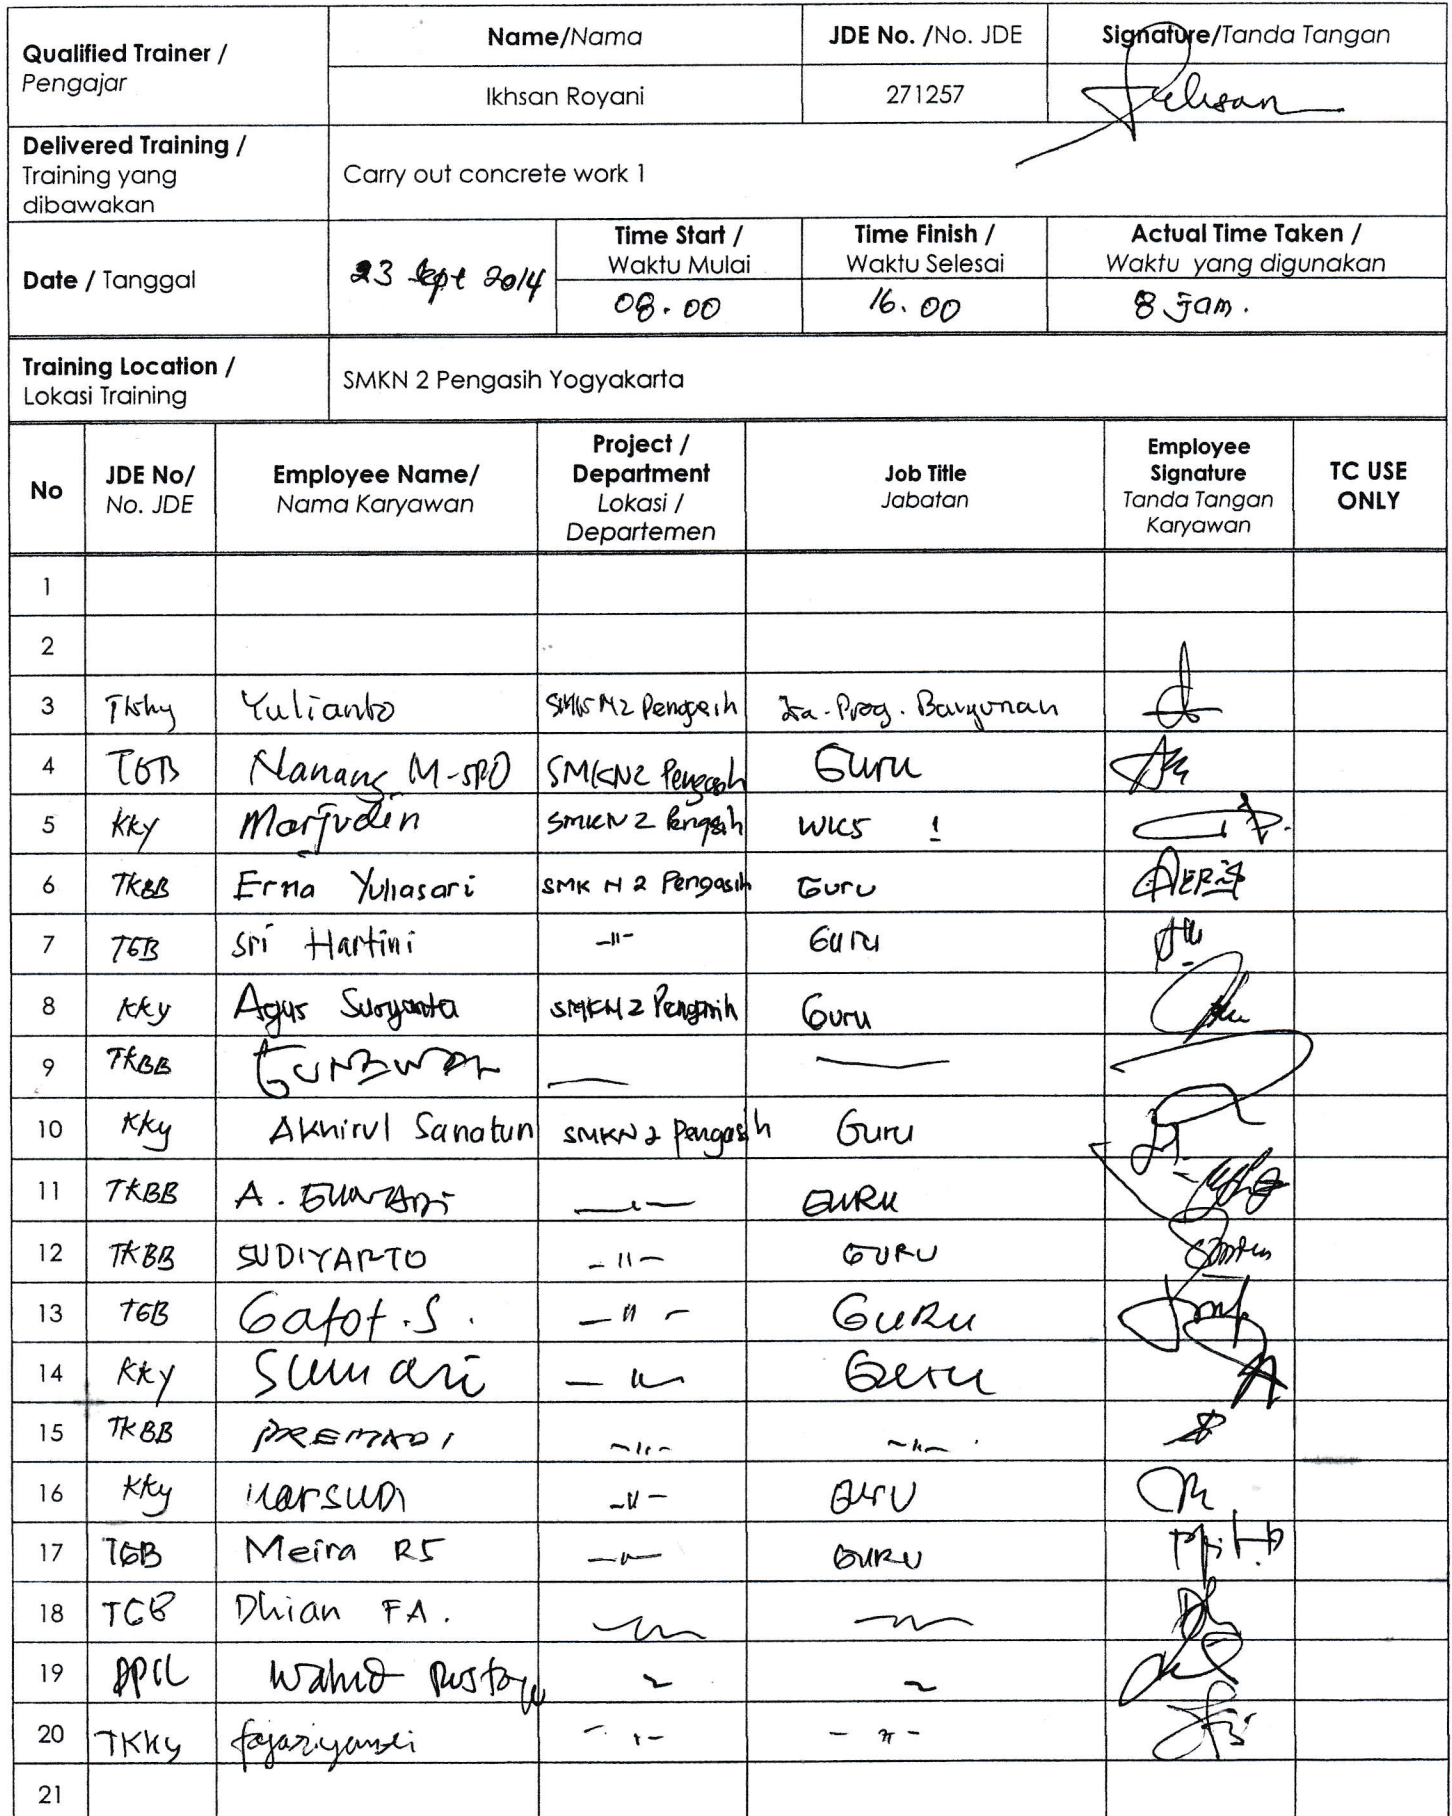 Qualified Trainer /
Pengajar
Name/Nama
JDE No. /No. JDE
Signature/Tanda Tangan
Ikhsan Royani
271257
Delivered Training /
Training yang
dibawakan
Carry out concrete work 1
Date / Tanggal
23 Sept 2014
Time Start /
Waktu Mulai
Time Finish /
Waktu Selesai
Actual Time Taken /
Waktu yang digunakan
08.00
16.00
8 Jam.
Training Location /
Lokasi Training
SMKN 2 Pengasih Yogyakarta
No
JDE No/
No. JDE
Employee Name/
Nama Karyawan
Project /
Department
Lokasi /
Departemen
Job Title
Jabatan
Employee
Signature
Tanda Tangan
Karyawan
TC USE
ONLY
1
2
3 Yulianto SMK N2 Pengasih Ka. Prog. Bangunan
4 TGB Nanang SMKN2 Pengasih Guru
5 KKy Marjudin SMKN 2 Pengasih WKS 1
6 TKBB Erna Yuliasari SMK N 2 Pengasih Guru
7 TGB Sri Hartini -11- Guru
8 KKy Agus Suryanta SMKN 2 Pengasih Guru
9 TKBB Gunawan
10 KKy Akhirul Sanatun SMKN 2 Pengasih Guru
11 TKBB A. GURU
12 TKBB SUDIYARTO -11- GURU
13 TGB Gatot.S. -11- GURU
14 KKy Sumari -11- Guru
15 TKBB PREMADI -11- -11-
16 KKy MARSUDI -11- GURU
17 TGB Meira RS -11- GURU
18 TGB Dhian FA.
19 Wahid
20 TKKy fajariyansi -11- -11-
21